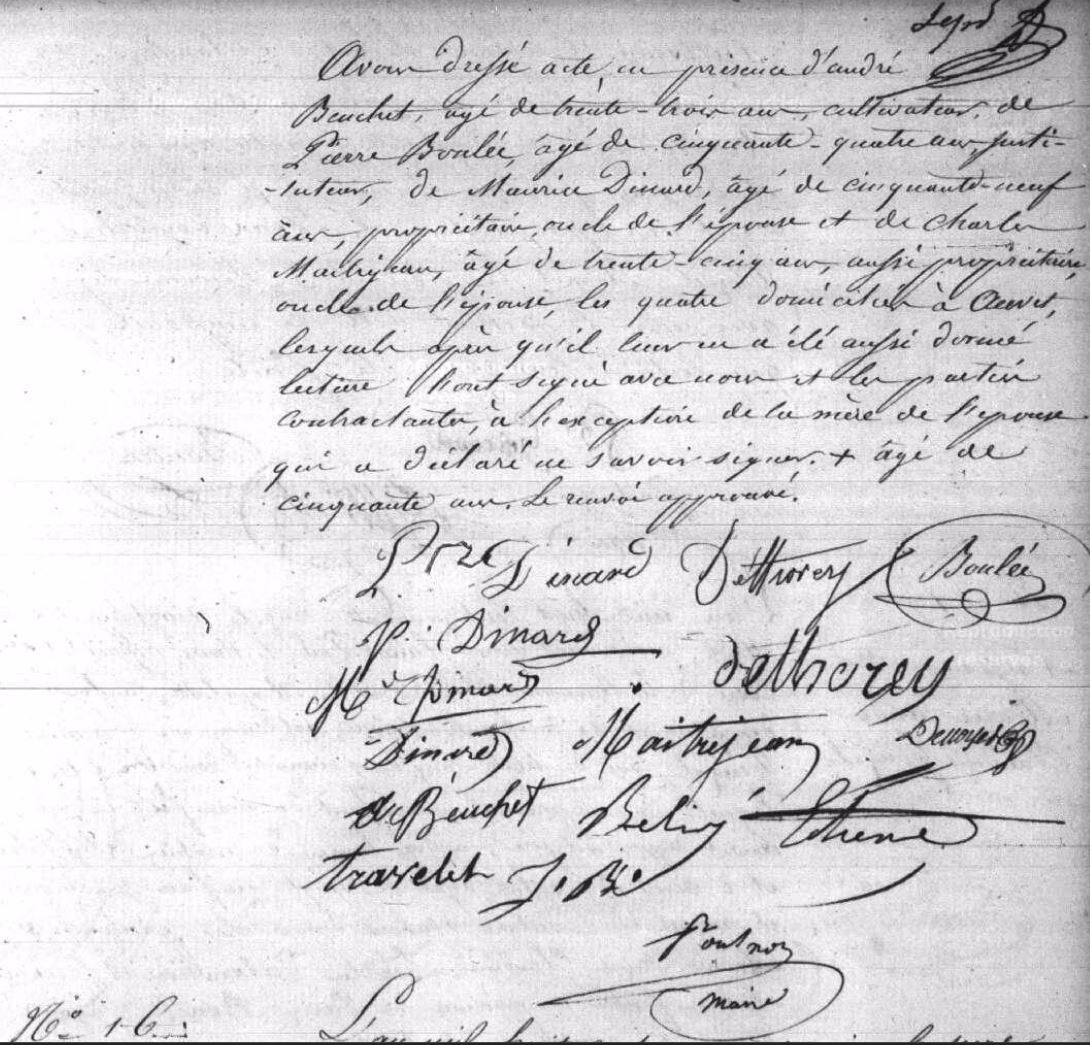 avons dressé acte, en présence d'andré
Beuchet, âgé de trente-trois ans, cultivateur, de
Pierre Boulée, âgé de cinquante-quatre ans, insti-
-tuteur, de Maurice Dinard, âgé de cinquante-neuf
ans, propriétaire, oncle de l'épouse et de Charles
Maitrejean, âgé de trente-cinq ans, aussi propriétaire,
oncle de l'épouse, les quatre domiciliés à Auvet,
lesquels après qu'il leur en a été aussi donné
lecture l'ont signé avec nous et les parties
contractantes, à l'exception de la mère de l'épouse
qui a déclaré ne savoir signer. + âgé de
cinquante ans. Le renvoi approuvé.
Dinard Dethorey Boulée
P. Dinard
dethorey
Md Dinard
Dinard Maitrejean
Beuchet Beliny Etienne
travelet J. B.
maire
N° 16
L'an mil huit cent